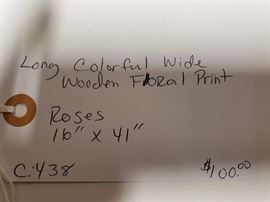 Long Colorful Wide
Wooden Floral Print
Roses
16" x 41"
C:438
$100.00